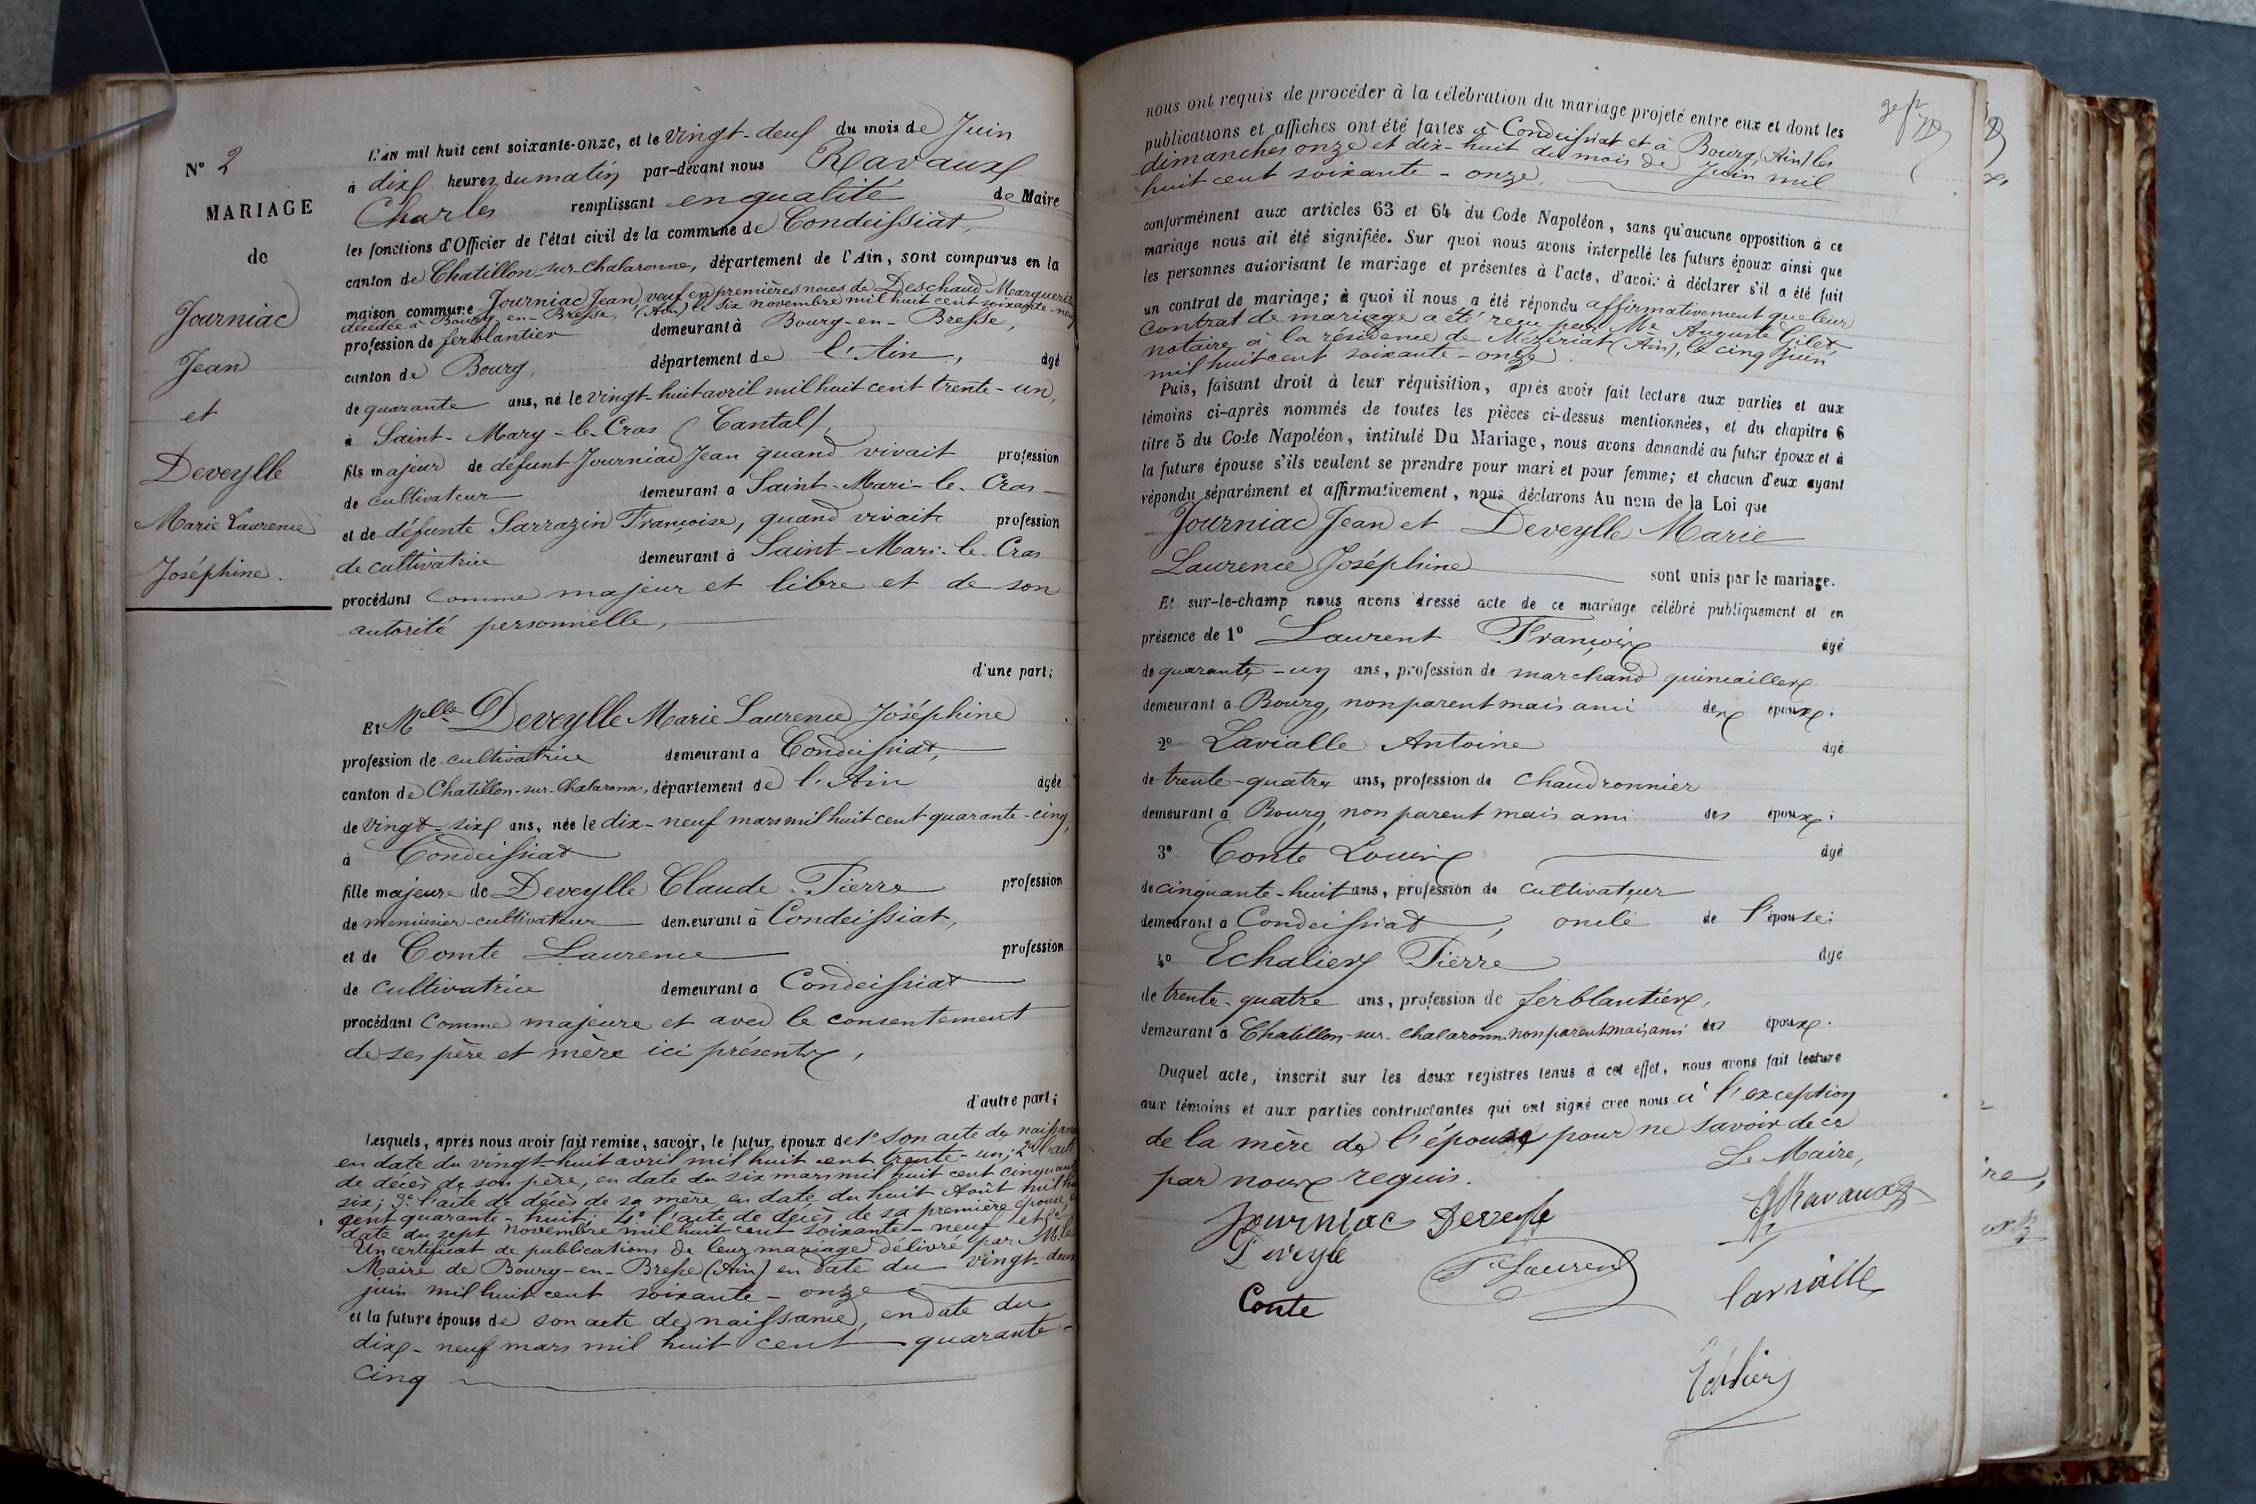 N° 2
MARIAGE
de
Journiac
Jean
et
Deveylle
Marie Laurence
Joséphine.
L'AN mil huit cent soixante-onze, et le vingt-deux du mois de Juin
à dix heures du matin par-devant nous Ravaux
Charles remplissant en qualité de Maire
les fonctions d'Officier de l'état civil de la commune de Condeissiat,
canton de Chatillon-sur-Chalaronne, département de l'Ain, sont comparus en la
maison commune Journiac Jean, veuf en premières noces de Deschaud Marguerite
décédée à Bourg-en-Bresse, (Ain) le six novembre mil huit cent soixante-neuf
profession de ferblantier demeurant à Bourg-en-Bresse,
canton de Bourg, département de l'Ain, âgé
de quarante ans, né le vingt-huit avril mil huit cent trente-un,
à Saint-Mary-le-Cros (Cantal),
fils majeur de défunt Journiac Jean quand vivait profession
de cultivateur demeurant à Saint-Mari-le-Cros
et de défunte Sarrazin Françoise, quand vivait profession
de cultivatrice demeurant à Saint-Mari-le-Cros
procédant comme majeur et libre et de son
autorité personnelle,
d'une part;
Et Melle Deveylle Marie Laurence Joséphine
profession de cultivatrice demeurant à Condeissiat,
canton de Chatillon-sur-Chalaronne, département de l'Ain âgée
de vingt-six ans, née le dix-neuf mars mil huit cent quarante-cinq,
à Condeissiat
fille majeure de Deveylle Claude Pierre profession
de menuisier-cultivateur demeurant à Condeissiat,
et de Comte Laurence profession
de cultivatrice demeurant à Condeissiat
procédant comme majeure et avec le consentement
de ses père et mère ici présents,
d'autre part;
Lesquels, après nous avoir fait remise, savoir, le futur époux de 1° son acte de naissance
en date du vingt-huit avril mil huit cent trente-un; 2° l'acte
de décès de son père, en date du six mars mil huit cent cinquante
six; 3° l'acte de décès de sa mère en date du huit Août mil huit
cent quarante-huit; 4° l'acte de décès de sa première épouse, en
date du sept novembre mil huit cent soixante-neuf et
Un certificat de publications de leur mariage délivré par M. le
Maire de Bourg-en-Bresse (Ain) en date du vingt-deux
juin mil huit cent soixante-onze
et la future épouse de son acte de naissance, en date du
dix-neuf mars mil huit cent quarante-
cinq
nous ont requis de procéder à la célébration du mariage projeté entre eux et dont les
publications et affiches ont été faites à Condeissiat et à Bourg (Ain) les
dimanches onze et dix-huit du mois de Juin mil
huit cent soixante-onze.
conformément aux articles 63 et 64 du Code Napoléon, sans qu'aucune opposition à ce
mariage nous ait été signifiée. Sur quoi nous avons interpellé les futurs époux ainsi que
les personnes autorisant le mariage et présentes à l'acte, d'avoir à déclarer s'il a été fait
un contrat de mariage; à quoi il nous a été répondu affirmativement que leur
contrat de mariage a été reçu par Me Auguste Gilet
notaire à la résidence de Mézériat (Ain), le cinq juin
mil huit cent soixante-onze
Puis, faisant droit à leur réquisition, après avoir fait lecture aux parties et aux
témoins ci-après nommés de toutes les pièces ci-dessus mentionnées, et du chapitre 6
titre 5 du Code Napoléon, intitulé Du Mariage, nous avons demandé au futur époux et à
la future épouse s'ils veulent se prendre pour mari et pour femme; et chacun d'eux ayant
répondu séparément et affirmativement, nous déclarons Au nom de la Loi que
Journiac Jean et Deveylle Marie
Laurence Joséphine sont unis par le mariage.
Et sur-le-champ nous avons dressé acte de ce mariage célébré publiquement et en
présence de 1° Laurent François âgé
de quarante-un ans, profession de marchand quincailler
demeurant à Bourg, non parent mais ami des époux;
2° Lavialle Antoine âgé
de trente-quatre ans, profession de chaudronnier
demeurant à Bourg, non parent mais ami des époux;
3° Conte Louis âgé
de cinquante-huit ans, profession de cultivateur
demeurant à Condeissiat, oncle de l'épouse;
4° Echalier Pierre âgé
de trente-quatre ans, profession de ferblantier,
demeurant à Chatillon-sur-Chalaronne non parent mais ami des époux.
Duquel acte, inscrit sur les deux registres tenus à cet effet, nous avons fait lecture
aux témoins et aux parties contractantes qui ont signé avec nous à l'exception
de la mère de l'épouse pour ne savoir de ce
par nous requis.
Le Maire,
Journiac Deveyle Ravaux
Deveyle
F Laurent
Lavialle
Conte
Echalier